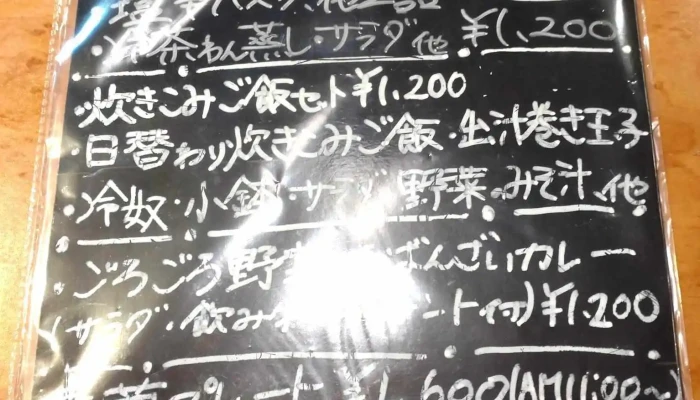 茶わん蒸し・サラダ他 ¥1,200
・炊きこみご飯セット¥1,200
・日替わり炊きこみご飯・出汁巻き玉子
・冷奴・小鉢・サラダ・野菜・みそ汁、他
・ごろごろ野菜おばんざいカレー
(サラダ・飲み ト付)¥1,200
プレート 1,600(AM11:00〜)